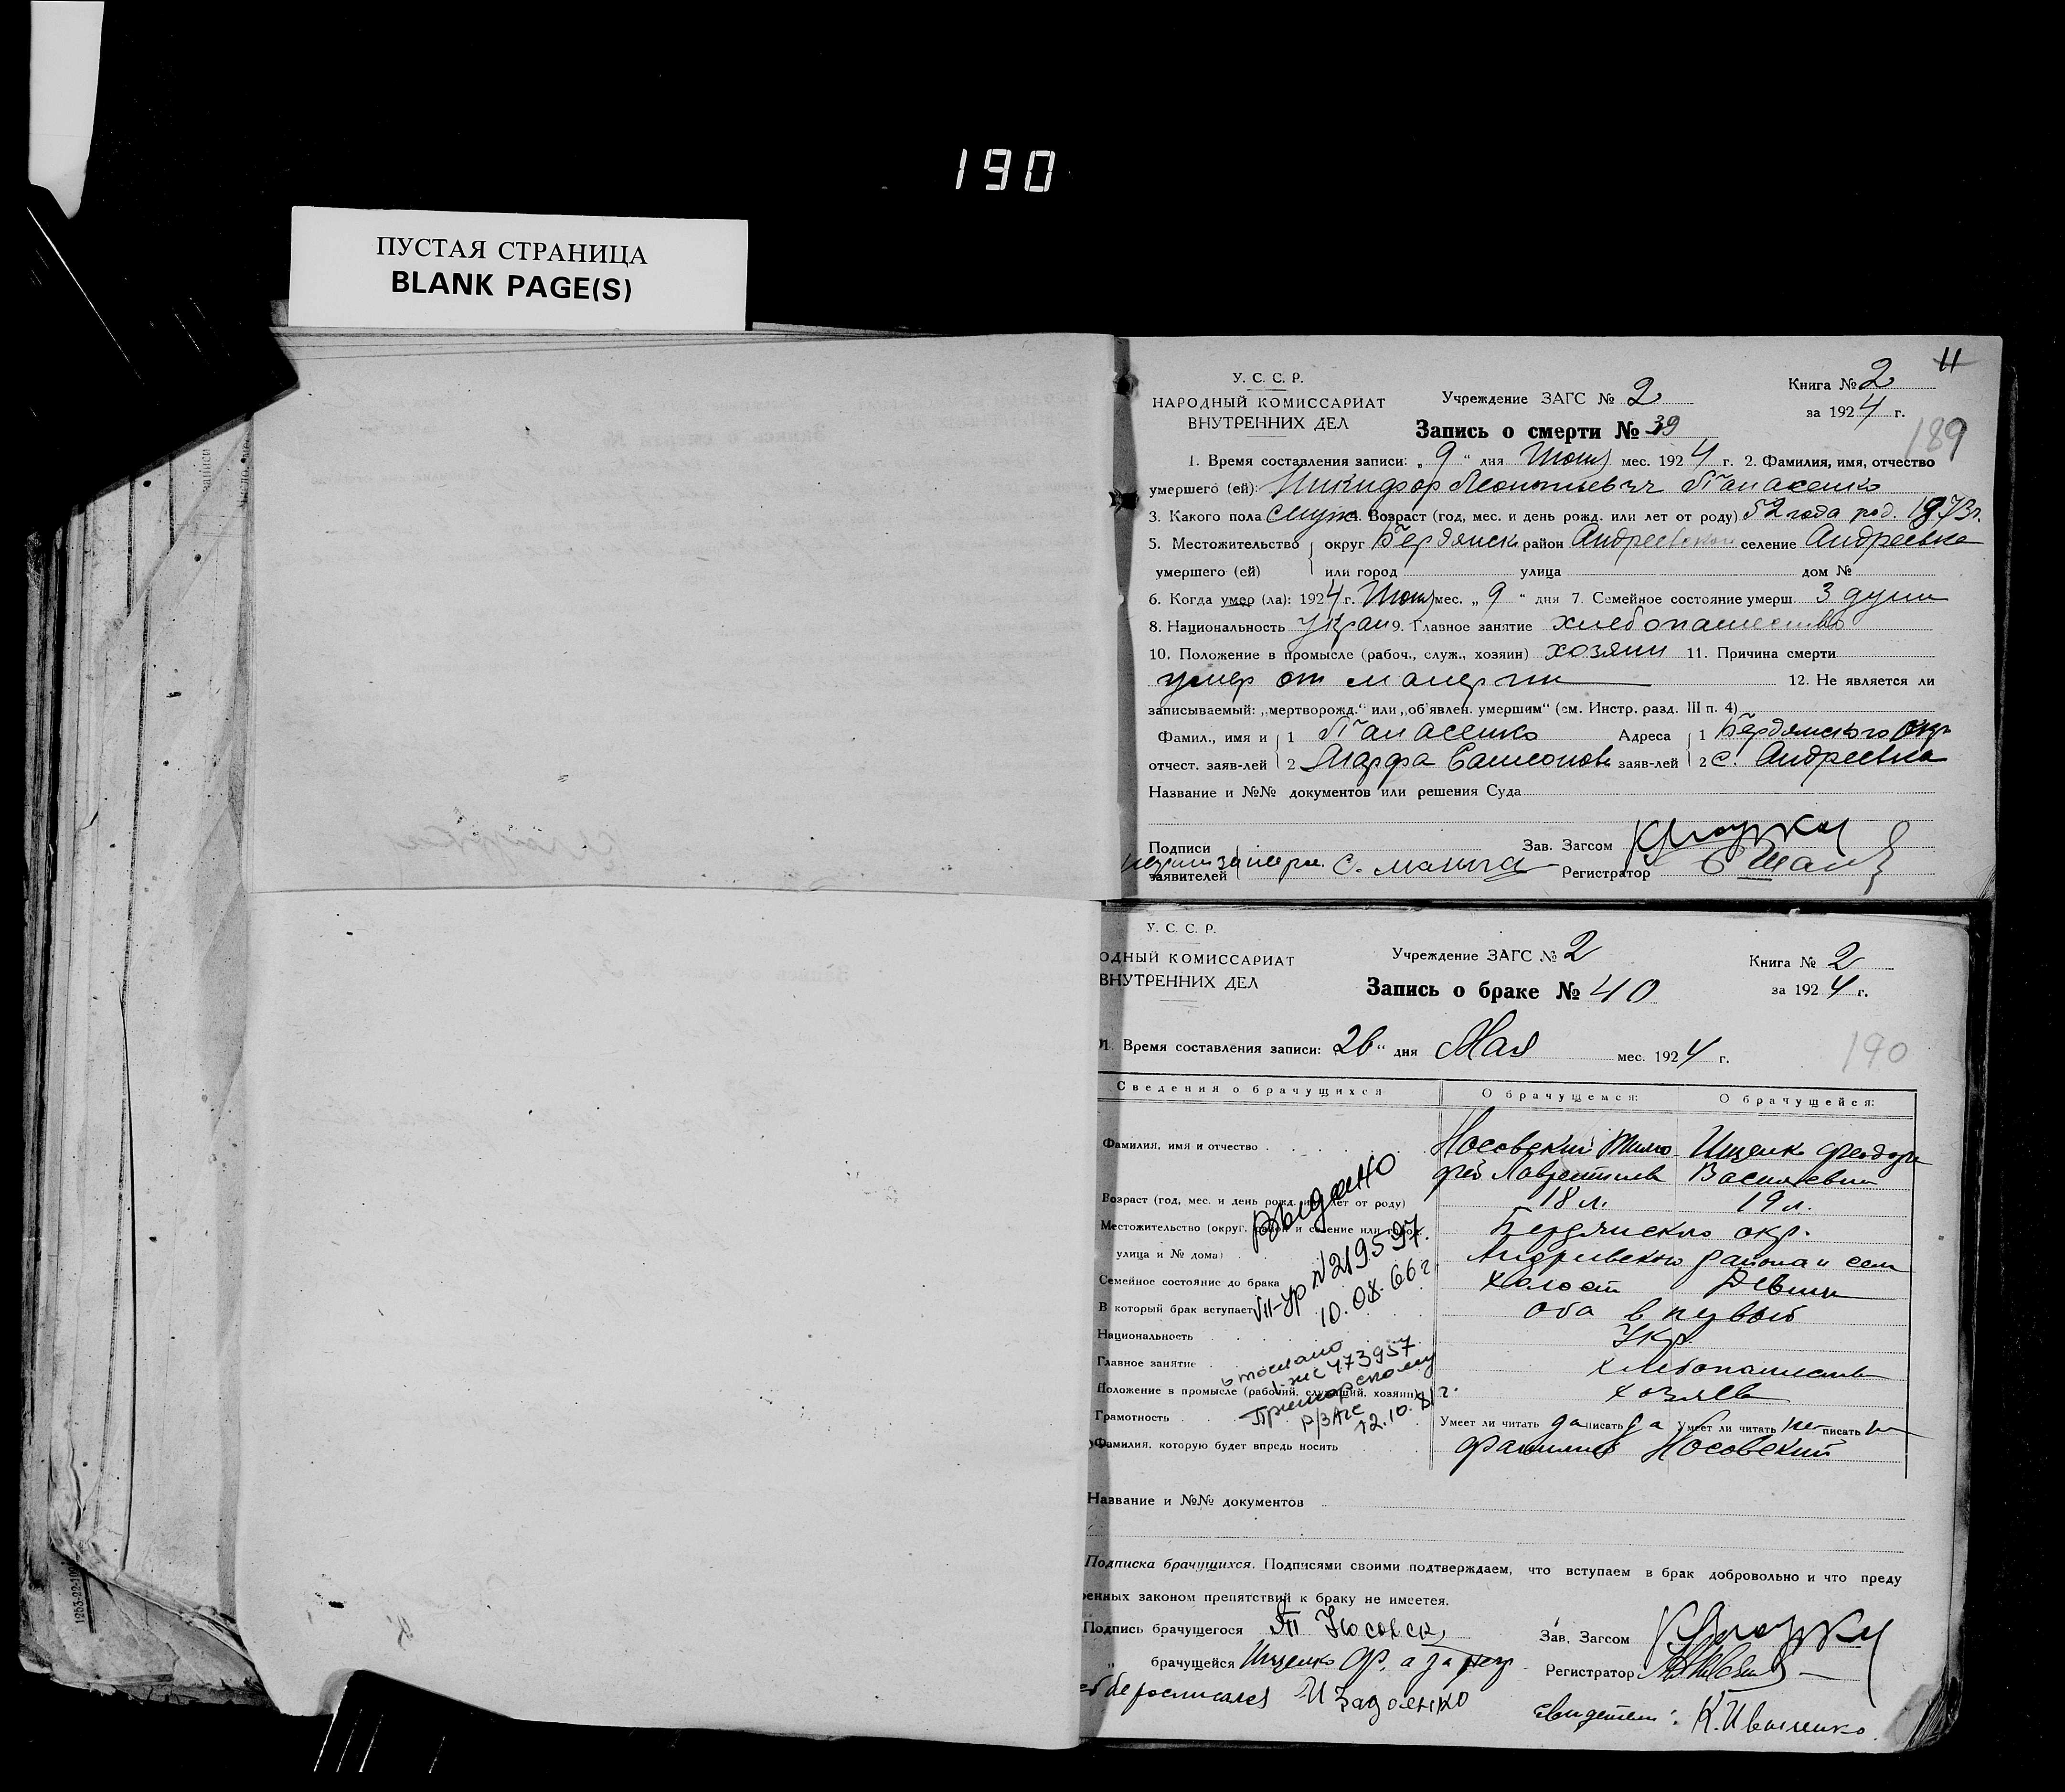 190
ПУСТАЯ СТРАНИЦА
BLANK PAGE(S)
У. С. С. Р.
НАРОДНЫЙ КОМИССАРИАТ
ВНУТРЕННИХ ДЕЛ
Учреждение ЗАГС № 2
Запись о смерти № 39
Книга № 2
за 1924 г.
189
1. Время составления записи: „9“ дня мес. 1924 г. 2. Фамилия, имя, отчество
умершего (ей): Никифор Леонтьевич Панасенко
3. Какого пола муж 4. Возраст (год, мес. и день рожд. или лет от роду) 52 года род. 1873 г.
5. Местожительство округ Бердянск район Андреевский селение Андреевка
умершего (ей) или город улица дом №
6. Когда умер (ла): 1924 г. мес. „9“ дня 7. Семейное состояние умерш. 3 души
8. Национальность Украи 9. Главное занятие хлебопашество
10. Положение в промысле (рабоч., служ., хозяин) хозяин 11. Причина смерти
умер от 12. Не является ли
записываемый: „мертворожд.“ или „об'явлен. умершим“ (см. Инстр. разд. III п. 4)
Фамил., имя и 1 Панасенко Адреса 1 Бердянского окр
отчест. заяв-лей 2 Марфа Самсонов заяв-лей 2 с. Андреевка
Название и №№ документов или решения Суда
Подписи Зав. Загсом
заявителей Регистратор
У. С. С. Р.
ОДНЫЙ КОМИССАРИАТ
ВНУТРЕННИХ ДЕЛ
Учреждение ЗАГС № 2
Запись о браке № 40
Книга № 2
за 1924 г.
1. Время составления записи: 26“ дня Мая мес. 1924 г.
190
Сведения о брачущихся О брачущемся: О брачущейся:
Фамилия, имя и отчество Носовский Тимо Ищенко Феодора
фей Лаврентиев Васильевна
Возраст (год, мес. и день рожд. или лет от роду) 18 л. 19 л.
Местожительство (округ, район и селение или город, Бердянского окр.
улица и № дома) Андреевского района и села
Семейное состояние до брака холост Девица
В который брак вступает оба в первый
Национальность Укр.
Главное занятие хлебопашество
Положение в промысле (рабочий, служащий, хозяин) хозяева
Грамотность Умеет ли читать да писать да Умеет ли читать нет писать
Фамилия, которую будет впредь носить фамилия Носовский
Выдано
VII-УР №219597.
10.08.66 г
1 жс 473957
Приморскому
р/ЗАГС
12.10.81 г.
Название и №№ документов
Подписка брачущихся. Подписями своими подтверждаем, что вступаем в брак добровольно и что преду
енных законом препятствий к браку не имеется.
Подпись брачущегося Т Носовск Зав. Загсом
„ брачущейся Ищенко Ф. а за негр Регистратор
росписался И Задоенко
свидетели: К. Иваненко